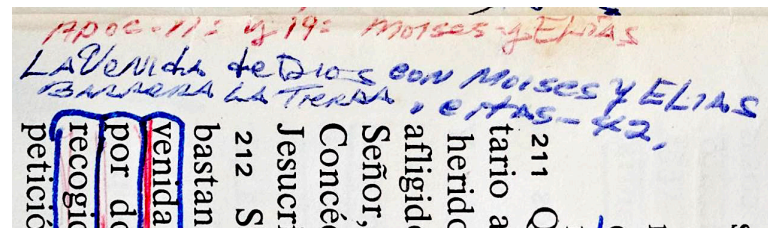 Apoc-11: y 19: Moises y ELIAS
LA VENIDA de DIOS CON MOISES Y ELIAS
BARRERA LA TIERRA,
211 Q
tario a
herido
afligido
Señor,
Concéd
Jesucri
212 S
bastan
venida
por do
recogid
petició